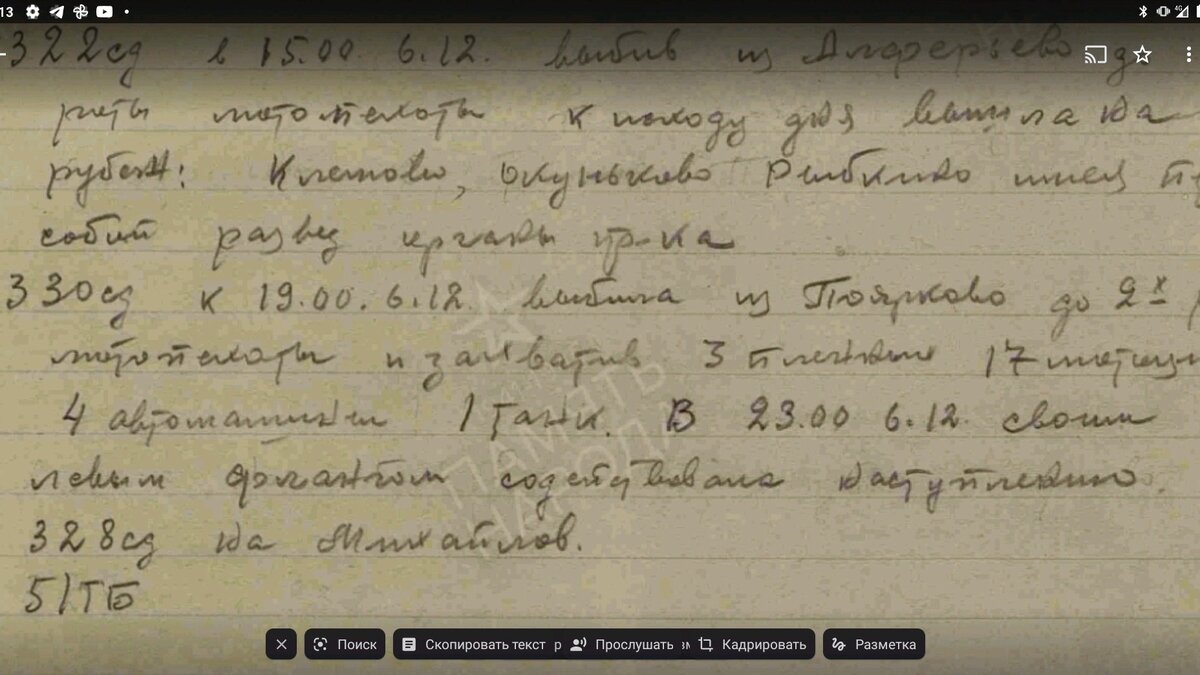 13
322сд в 15.00 6.12. выбив из Алферьево
роты мотопехоты к исходу дня вышла на
рубеж: Клетово, Окуньково Рыбкино имея
собой развед органы пр-ка
330сд к 19.00. 6.12. выбила из Поярково до 2х
мотопехоты и захватив 3 пленных 17
4 автомашины 1 танк. В 23.00 6.12. своим
левым флангом содействовала наступлению.
328сд на Михайлов.
51ТБ
ПАМЯТЬ
НАРОДА
Поиск Скопировать текст Прослушать Кадрировать Разметка